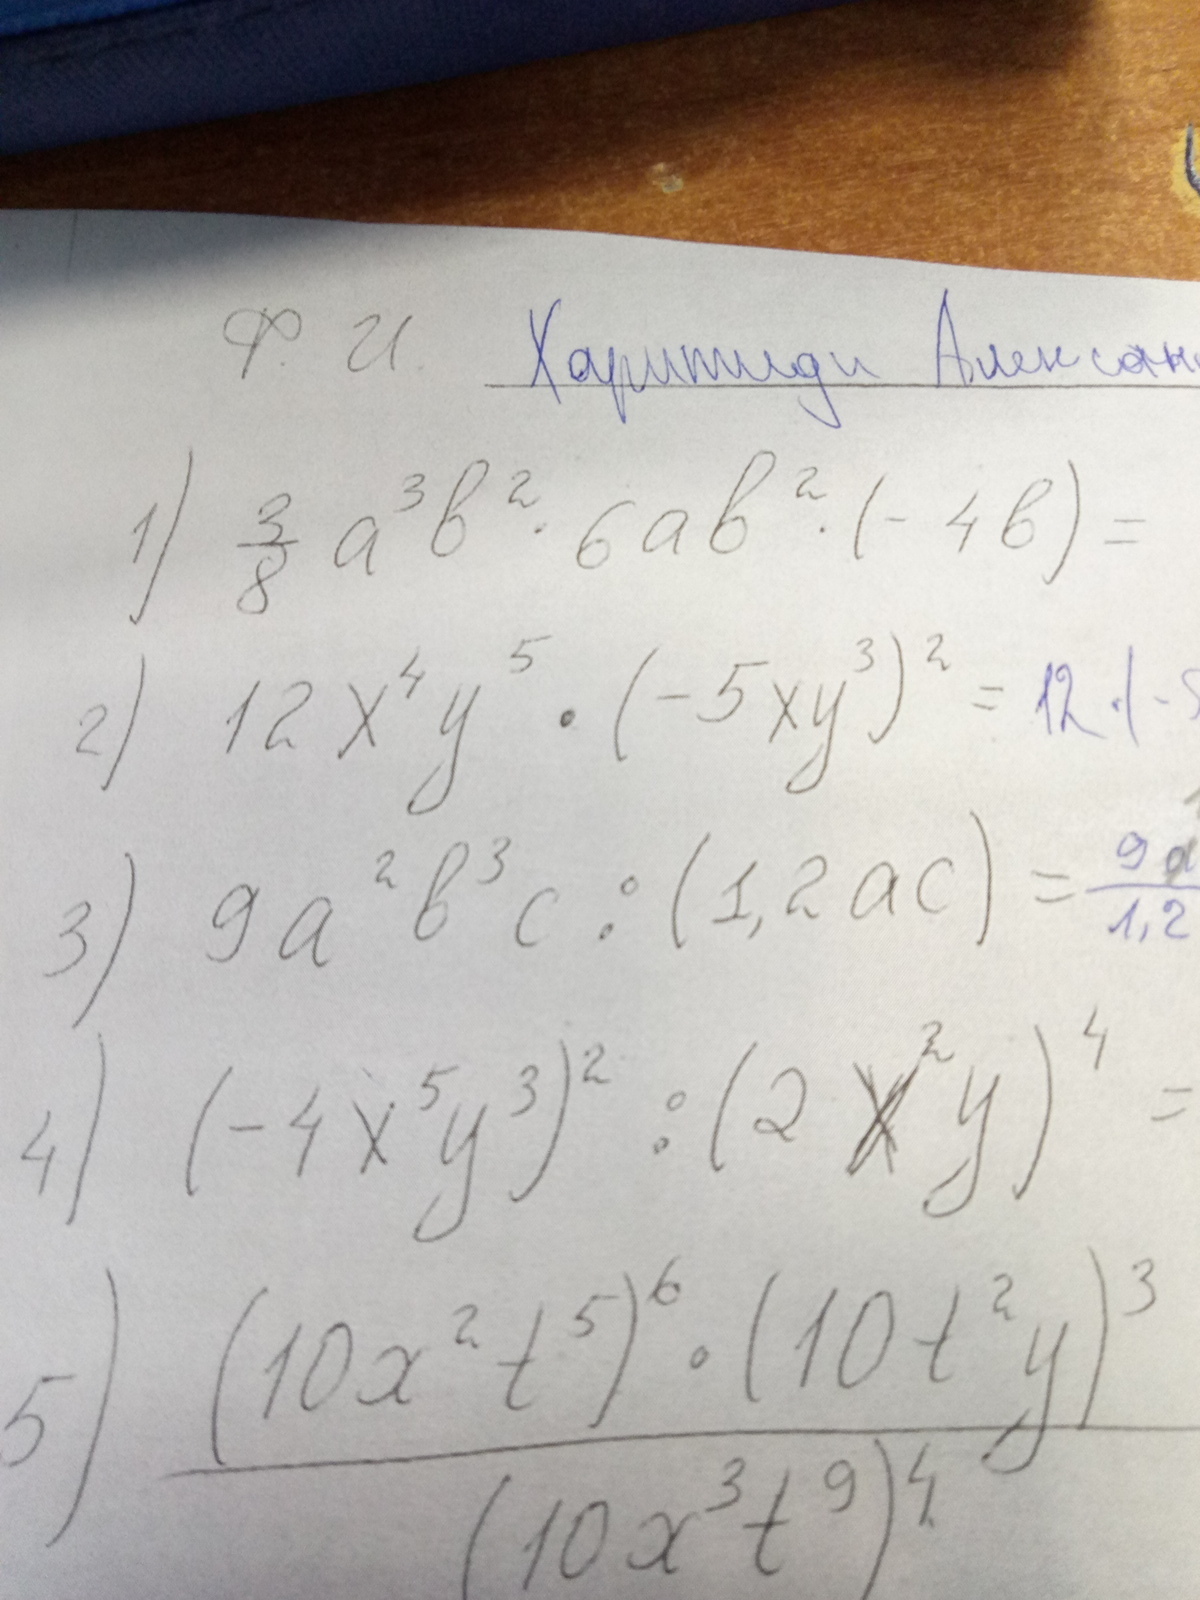 Ф. И. Харитиди Алексан
1) 3/8 a³b² · 6ab² · (- 4b) =
2) 12x⁴y⁵ · (-5xy³)² = 12 · (-5
3) 9a²b³c : (1,2ac) = 9a/1,2
4) (-4x⁵y³)² : (2x²y)⁴ =
5) (10x²t⁵)⁶ · (10t²y)³
(10x³t⁹)⁴